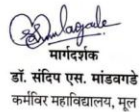 मार्गदर्शक
डॉ. संदिप एस. मांडवगडे
कर्मविर महाविद्यालय, मूल